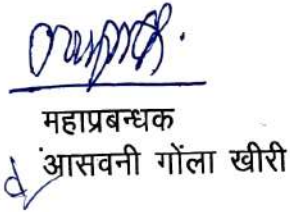 महाप्रबन्धक
आसवनी गोंला खीरी